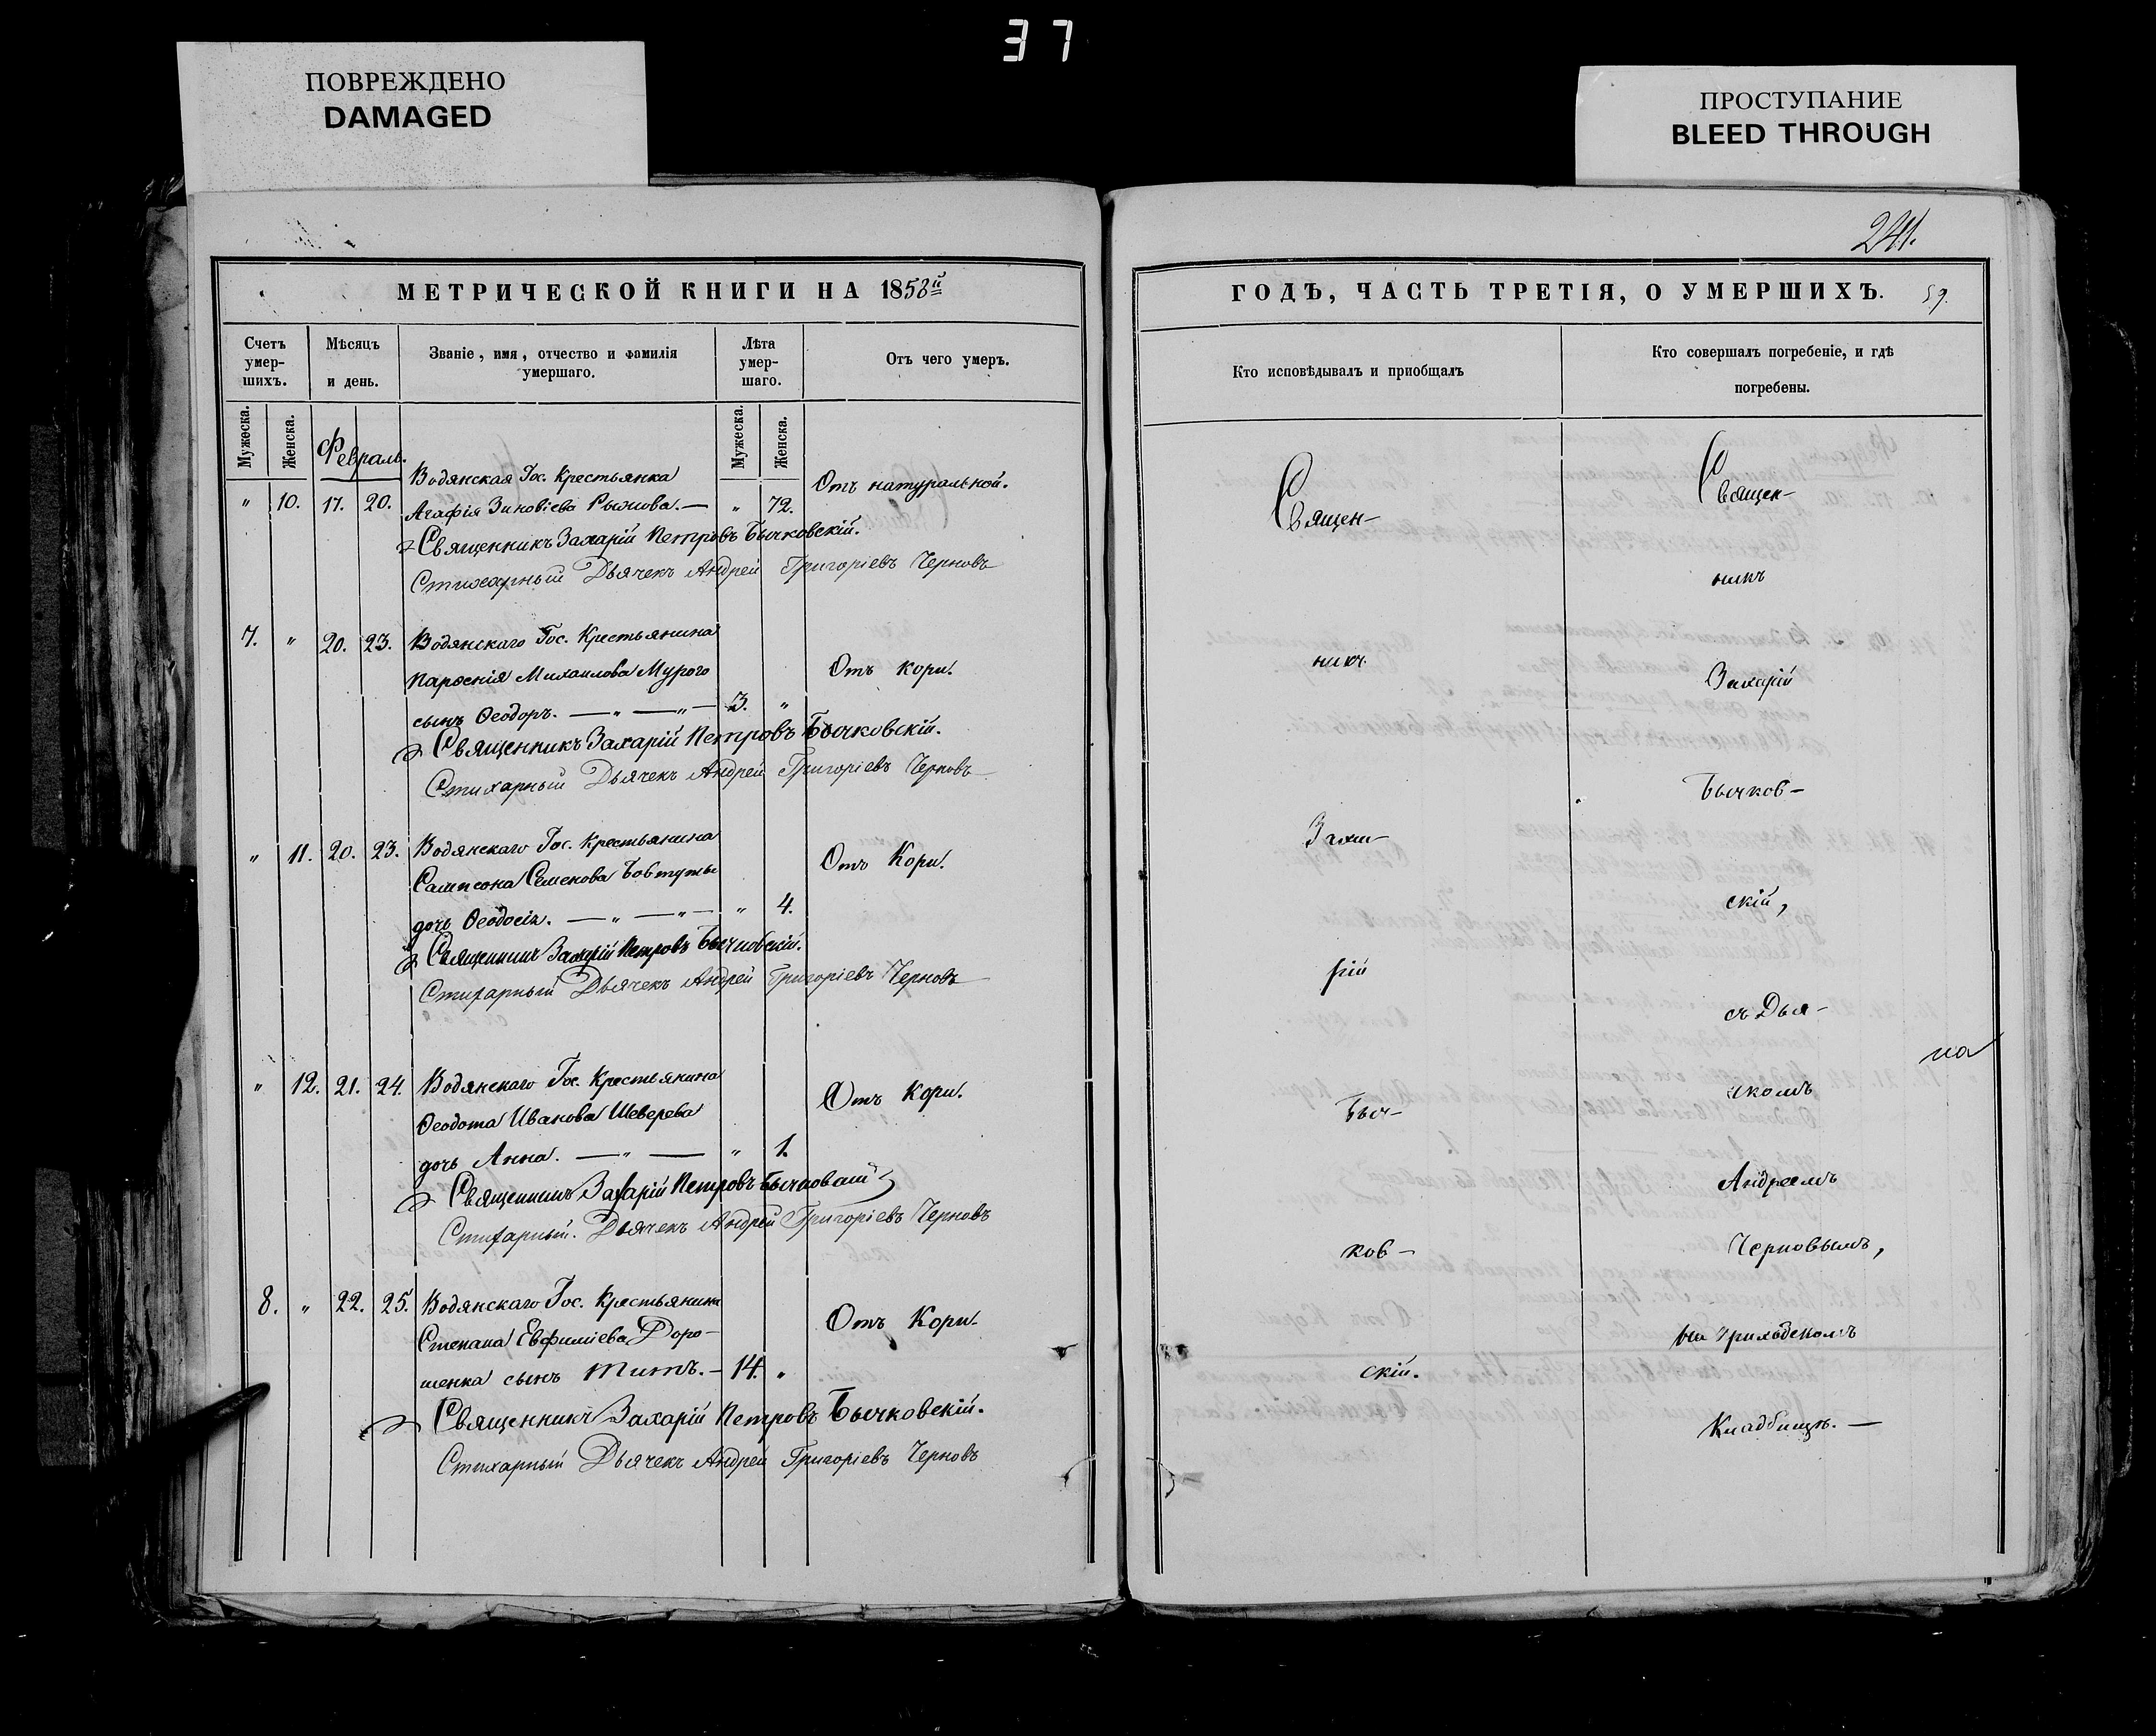 37
ПОВРЕЖДЕНО
DAMAGED
ПРОСТУПАНИЕ
BLEED THROUGH
МЕТРИЧЕСКОЙ КНИГИ НА 1858й
Счетъ умер-шихъ.
Мѣсяцъ и день.
Званіе, имя, отчество и фамилія умершаго.
Лѣта умер-шаго.
Отъ чего умеръ.
Мужеска. Женска.
Мужеска. Женска.
Февраль.
Водянская Гос. Крестьянка
" 10. 17. 20. Агафія Зиновіева Рыжова. — " 72. Отъ натуральной.
Священникъ Захарій Петровъ Бычковскій.
Стихарный Дьячекъ Андрей Григоріевъ Черновъ
7. " 20. 23. Водянскаго Гос. Крестьянина
Парѳенія Михаилова Мурого Отъ кори.
сынъ Ѳеодоръ. — " — " — 3. "
Священникъ Захарій Петровъ Бычковскій.
Стихарный Дьячекъ Андрей Григоріевъ Черновъ
" 11. 20. 23. Водянскаго Гос. Крестьянина
Сампсона Семенова Бовтуты Отъ Кори.
дочь Ѳеодосія. — " — " — " 4.
Священникъ Захарій Петровъ Бычковскій.
Стихарный Дьячекъ Андрей Григоріевъ Черновъ
" 12. 21. 24. Водянскаго Гос. Крестьянина
Ѳеодота Иванова Шеверева Отъ Кори.
дочь Анна. — " — " 1.
Священникъ Захарій Петровъ Бычковскій
Стихарный. Дьячекъ Андрей Григоріевъ Черновъ
8. " 22. 25. Водянскаго Гос. Крестьянина
Степана Евфиміева Доро- Отъ Кори.
шенка сынъ Титъ. — 14. "
Священникъ Захарій Петровъ Бычковскій.
Стихарный Дьячекъ Андрей Григоріевъ Черновъ
241.
ГОДЪ, ЧАСТЬ ТРЕТІЯ, О УМЕРШИХЪ. 59.
Кто исповѣдывалъ и приобщалъ
Кто совершалъ погребеніе, и гдѣ погребены.
Священ-
никъ
Заха-
рій
Быч-
ков-
скій.
Священ-
никъ
Захарій
Бычков-
скій,
съ Дья-
чкомъ
Андреемъ
Черновымъ,
на Приходскомъ
Кладбищѣ. —
на